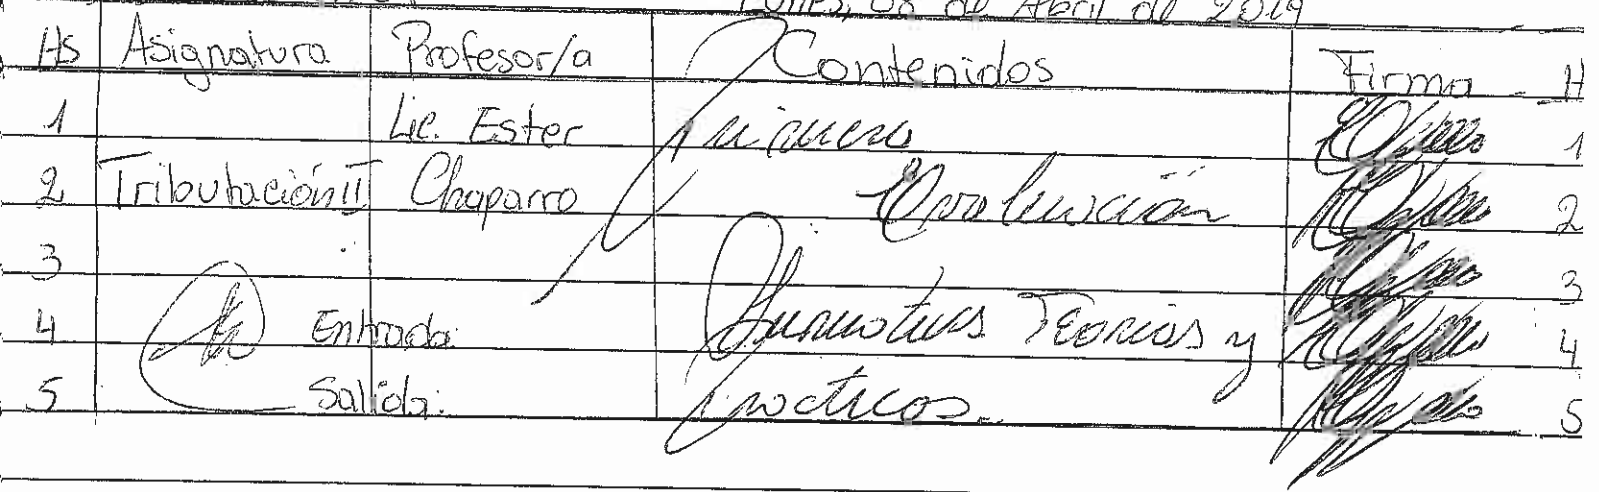 Lunes, 08 de Abril de 2019
Hs Asignatura Profesor/a Contenidos Firma H
1 Lic. Ester Primera 1
2 Tributación II Chaparro Evaluación 2
3 3
4 Entrada: Teorias y 4
5 Salida: practicos. 5